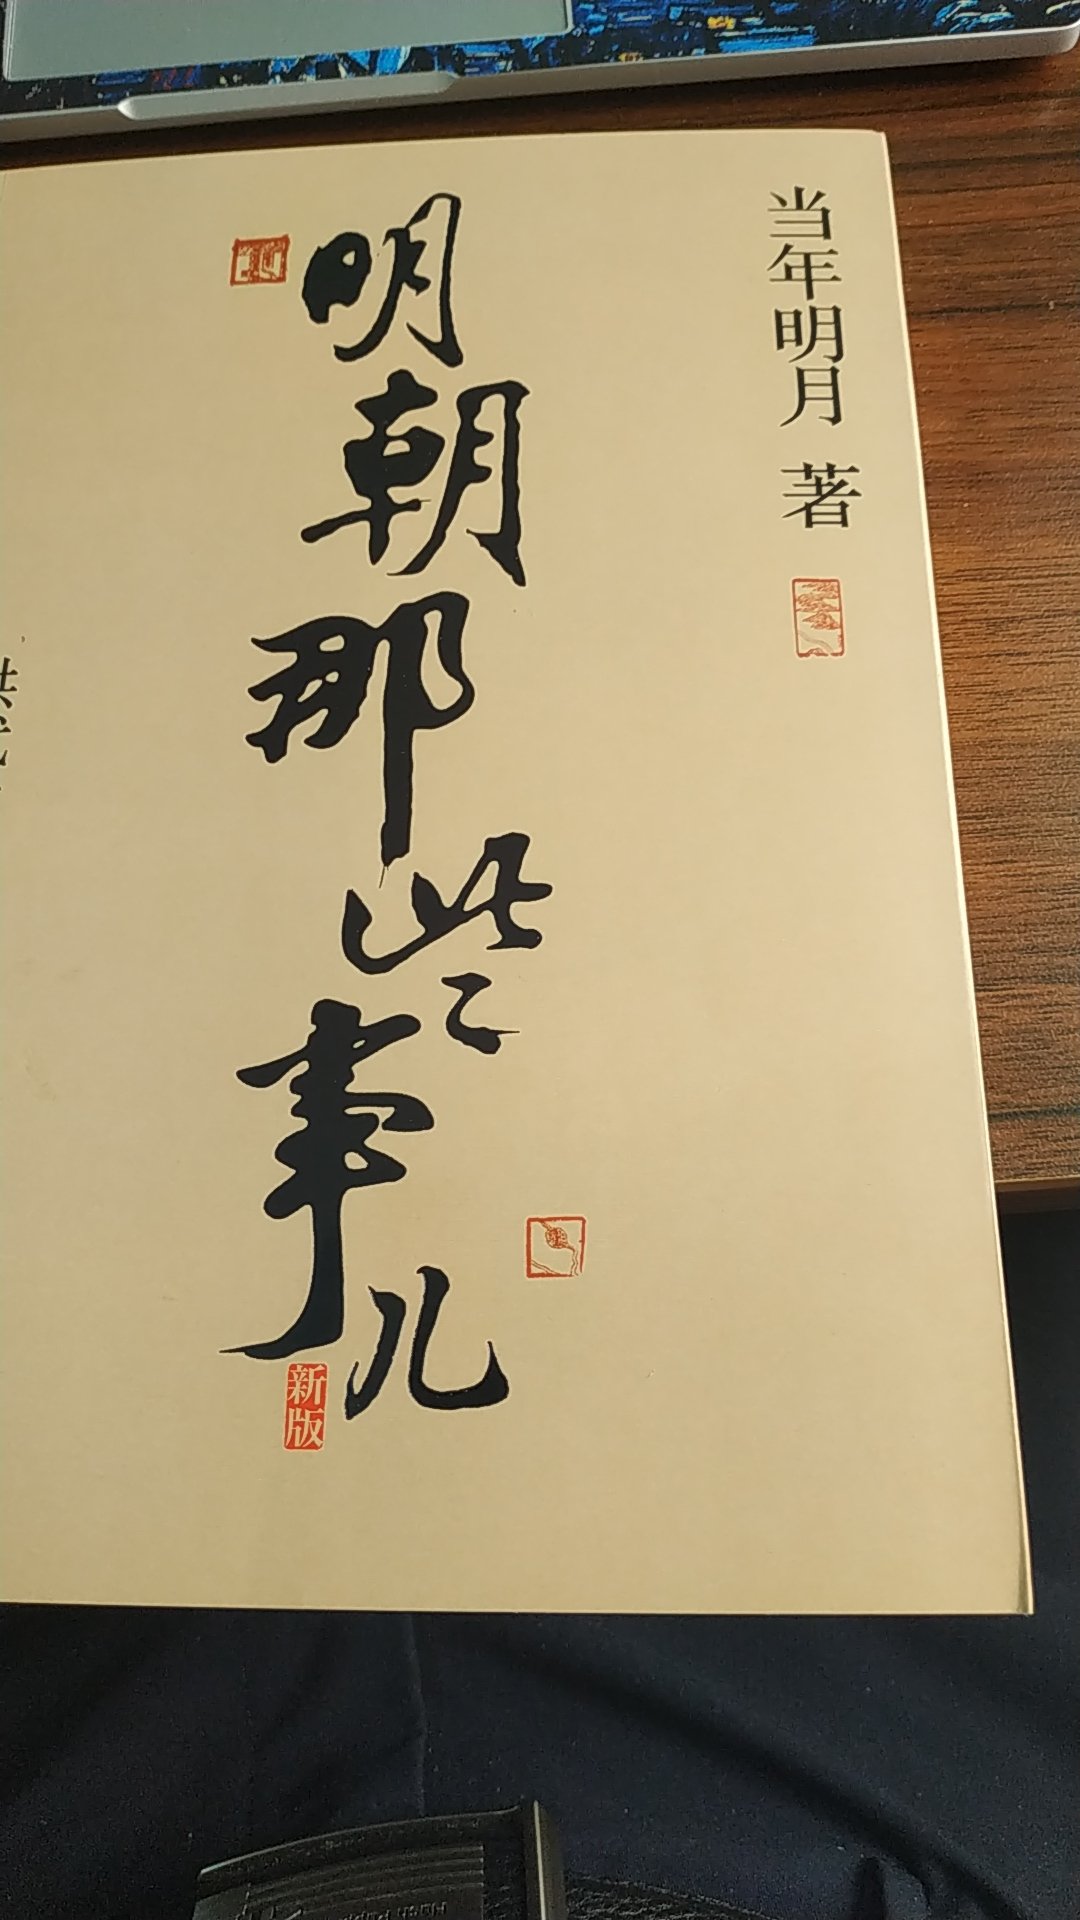 当年明月 著
明朝那些事儿
新版